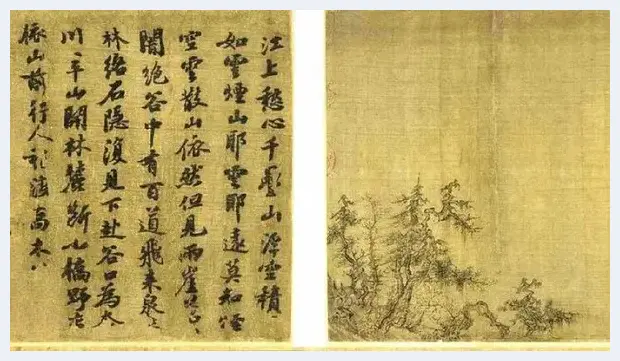 江上愁心千疊山浮空積
如雲煙山耶雲耶遠莫知煙
空雲散山依然但見兩崖蒼〻
闇絕谷中有百道飛來泉
林絡石隱復見下赴谷口為
川〻平山開林麓斷小橋野店
依山前行人稍渡高木